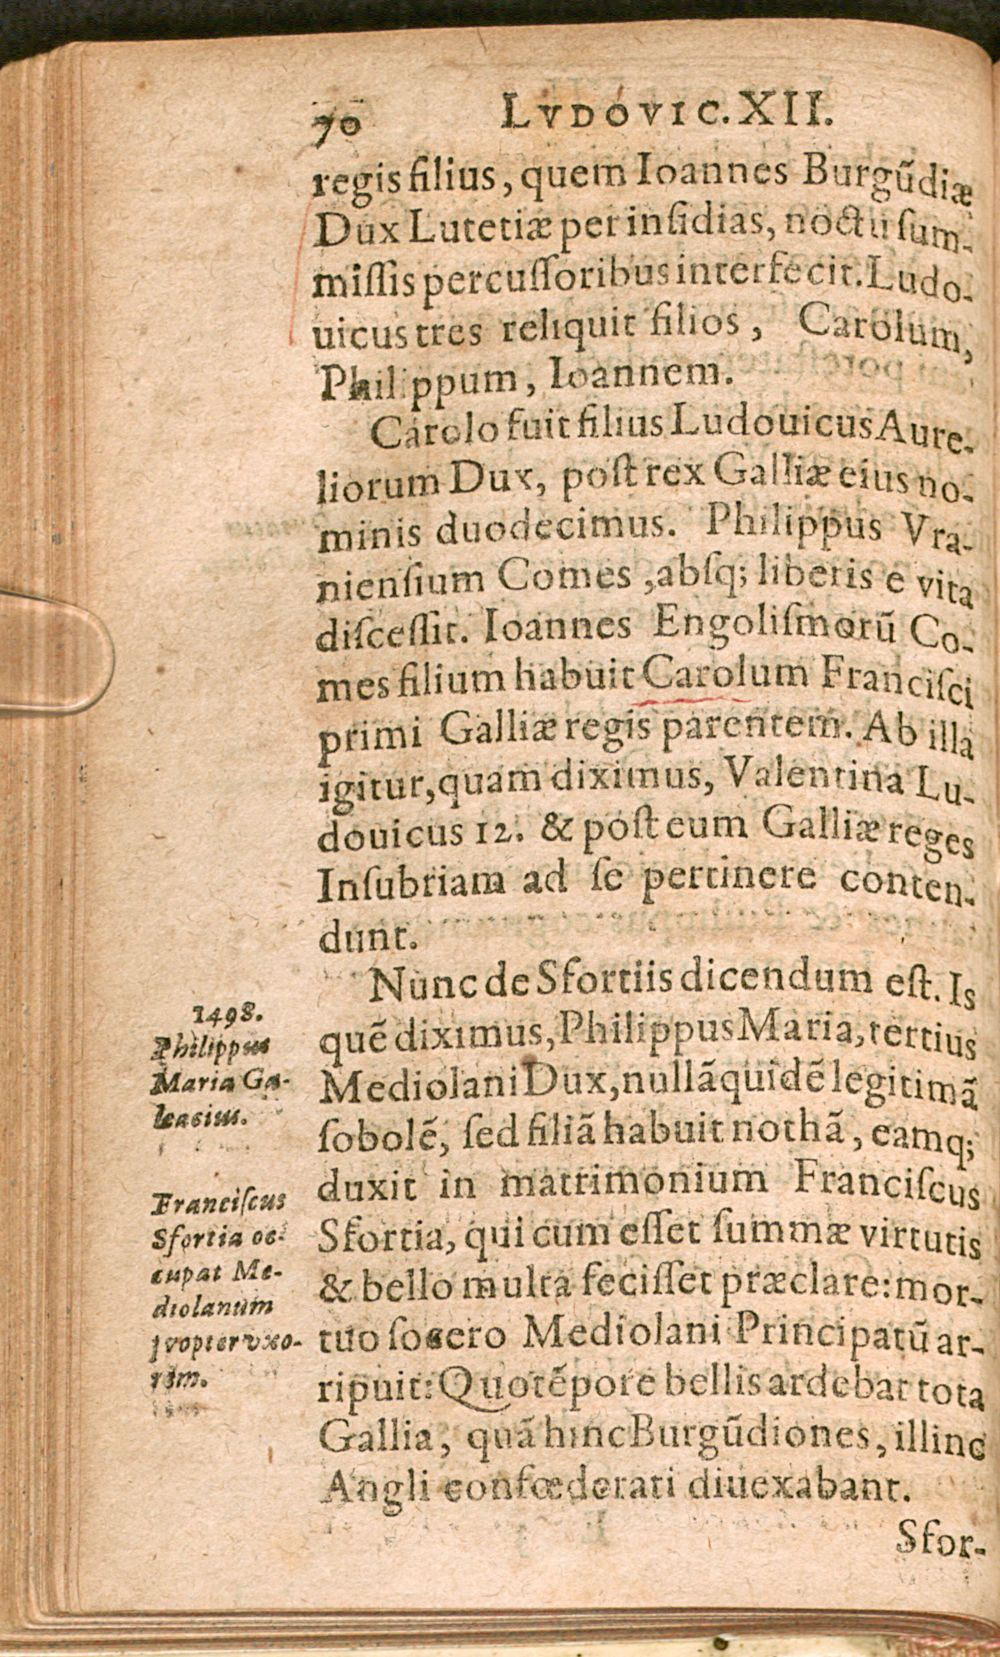 70 LVDOVIC. XII.
regis filius, quem Ioannes Burgũdiæ
Dux Lutetiæ per insidias, noctu sum-
missis percussoribus interfecit. Ludo-
uicus tres reliquit filios, Carolum,
Philippum, Ioannem.
Carolo fuit filius Ludouicus Aure-
liorum Dux, post rex Galliæ eius no-
minis duodecimus. Philippus Vra-
niensium Comes, absq; liberis e vita
discessit. Ioannes Engolismorũ Co-
mes filium habuit Carolum Francisci
primi Galliæ regis parentem. Ab illa
igitur, quam diximus, Valentina Lu-
douicus 12. & post eum Galliæ reges
Insubriam ad se pertinere conten-
dunt.
Nunc de Sfortiis dicendum est. Is
quẽ diximus, Philippus Maria, tertius
Mediolani Dux, nullã quidẽ legitimã
sobolẽ, sed filiã habuit nothã, eamq;
duxit in matrimonium Franciscus
Sfortia, qui cum esset summæ virtutis
& bello multa fecisset præclare: mor-
tuo socero Mediolani Principatũ ar-
ripuit: Quo tẽpore bellis ardebat tota
Gallia, quã hinc Burgũdiones, illinc
Angli confœderati diuexabant.
Sfor-
1498.
Philippus
Maria Ga-
leacius.
Franciscus
Sfortia oc-
cupat Me-
diolanum
propter vxo-
rem.